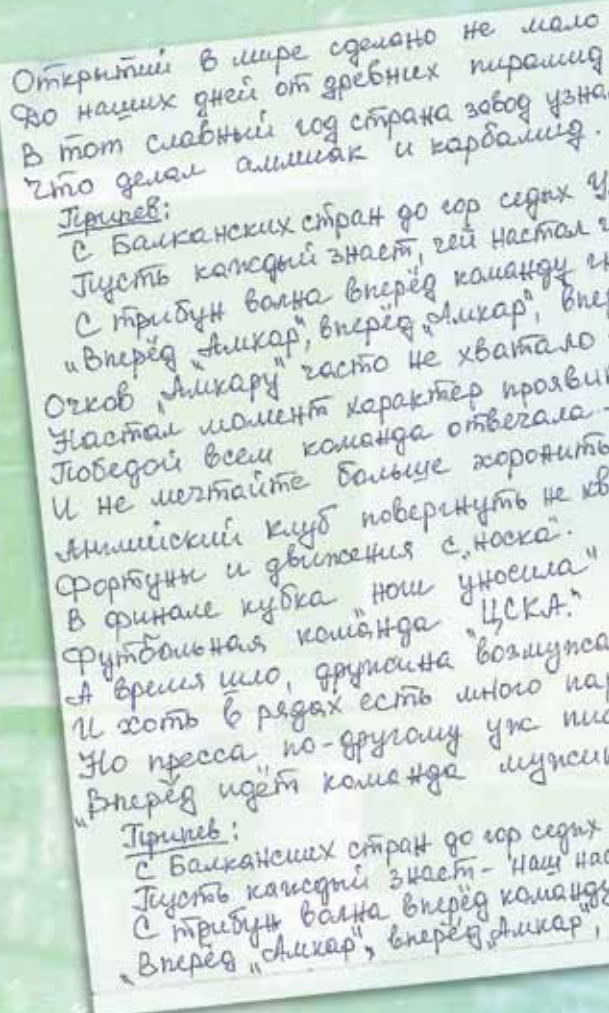 Открытий в мире сделано не мало
До наших дней от древних пирамид
В тот славный год страна завод узна
Что делал аммиак и карбамид.
Припев:
С Балканских стран до гор седых У
Пусть каждый знает, чей настал ч
С трибун волна вперёд команду г
"Вперёд "Амкар", вперёд "Амкар", впе
Очков "Амкару" часто не хватало
Настал момент характер прояви
Победой всем команда отвечала
И не мечтайте больше хоронить
Английский клуб повергнуть не хв
Фортуны и движения с "носка".
В финале кубка ноши уносила"
Футбольная команда "ЦСКА."
А время шло, дружина возмужа
И хоть в рядах есть много пар
Но пресса по-другому уж пис
"Вперёд идёт команда мужик
Припев:
С Балканских стран до гор седых
Пусть каждый знает - наш нас
С трибун волна вперёд команду
"Вперёд "Амкар", вперёд "Амкар",